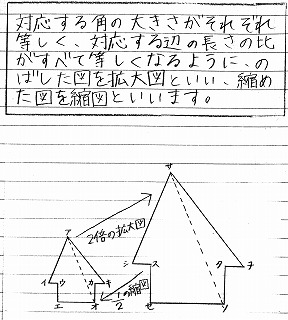 対応する角の大きさがそれぞれ
等しく、対応する辺の長さの比
がすべて等しくなるように、の
ばした図を拡大図といい、縮め
た図を縮図といいます。
サ
ア
2倍の拡大図
シ
ス
ク
ヲ
イ
ウ
カ
キ
1/2の縮図
エ
オ
セ
ソ